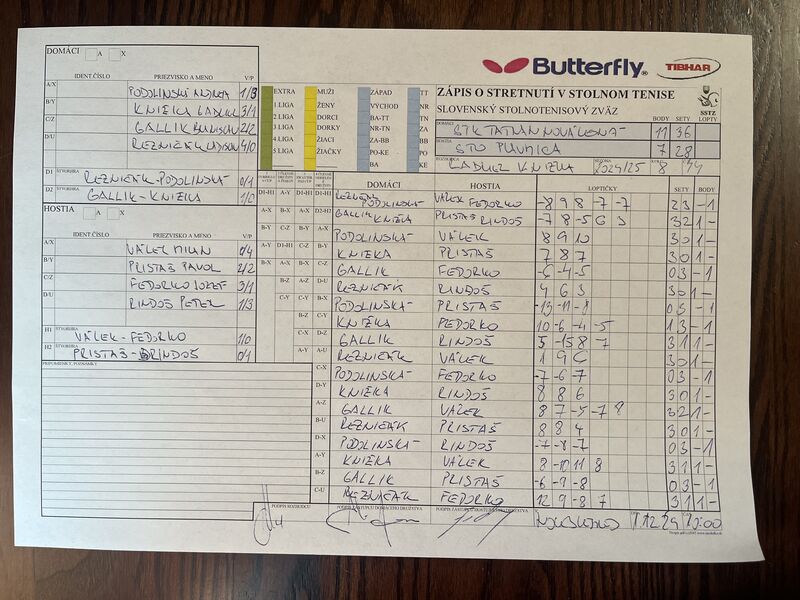 DOMÁCI A X
Butterfly® TIBHAR
IDENT.ČÍSLO PRIEZVISKO A MENO V/P
A/X PODOLINSKÁ ANDREA 1/3
B/Y KNIEKA LADISLAV 3/1
C/Z GALLIK 2/2
D/U REZNIČÁK 4/0
D1 ŠTVORHRA REZNIČÁK-PODOLINSKÁ 0/1
D2 ŠTVORHRA GALLIK-KNIEKA 1/0
HOSTIA A X
IDENT.ČÍSLO PRIEZVISKO A MENO V/P
A/X VÁLEK MILAN 0/4
B/Y PRISTAŠ PAVOL 2/2
C/Z FEDORKO JOZEF 3/1
D/U RINDOŠ PETER 1/3
H1 ŠTVORHRA VÁLEK-FEDORKO 1/0
H2 ŠTVORHRA PRISTAŠ-RINDOŠ 0/1
PRIPOMIENKY, POZNÁMKY
EXTRA MUŽI ZÁPAD TT
1.LIGA ŽENY VÝCHOD NR
2.LIGA DORCI BA-TT TN
3.LIGA DORKY NR-TN ZA
4.LIGA ŽIACI ZA-BB BB
5.LIGA ŽIAČKY PO-KE PO
BA KE
ZÁPIS O STRETNUTÍ V STOLNOM TENISE
SLOVENSKÝ STOLNOTENISOVÝ ZVÄZ
SSTZ
BODY SETY LOPTY
DOMÁCI STK TATRAN 11 36
HOSTIA STO PLAVNICA 7 28
ROZHODCA KNIEKA SEZÓNA 2024/25 KOLO 8
DOMÁCI HOSTIA LOPTIČKY SETY BODY
D1-H1 REZNIČÁK PODOLINSKÁ VÁLEK FEDORKO -8 9 8 -7 -7 2 3 -1
D2-H2 GALLIK KNIEKA PRISTAŠ RINDOŠ -7 8 -5 6 3 3 2 1 -
A-X PODOLINSKÁ VÁLEK 8 9 10 3 0 1 -
B-Y KNIEKA PRISTAŠ 7 8 7 3 0 1 -
C-Z GALLIK FEDORKO -6 -4 -5 0 3 -1
D-U REZNIČÁK RINDOŠ 4 6 3 3 0 1 -
B-X PODOLINSKÁ PRISTAŠ -13 -11 -8 0 3 -1
KNIEKA FEDORKO 10 -6 -4 -5 1 3 -1
GALLIK RINDOŠ 5 -15 8 7 3 1 1 -
REZNIČÁK VÁLEK 1 9 6 3 0 1 -
C-X PODOLINSKÁ FEDORKO -7 -6 -7 0 3 -1
D-Y KNIEKA RINDOŠ 8 8 6 3 0 1 -
A-Z GALLIK VÁLEK 8 7 -5 -7 8 3 2 1 -
B-U REZNIČÁK PRISTAŠ 8 8 4 3 0 1 -
D-X PODOLINSKÁ RINDOŠ -7 -8 -7 0 3 -1
A-Y KNIEKA VÁLEK 8 -10 11 8 3 1 1 -
B-Z GALLIK PRISTAŠ -6 -9 -8 0 3 -1
C-U REZNIČÁK FEDORKO 12 9 -8 7 3 1 1 -
PODPIS ROZHODCU PODPIS ZÁSTUPCU DOMÁCEHO DRUŽSTVA PODPIS ZÁSTUPCU HOSŤUJÚCEHO DRUŽSTVA
7.12.24 10:00